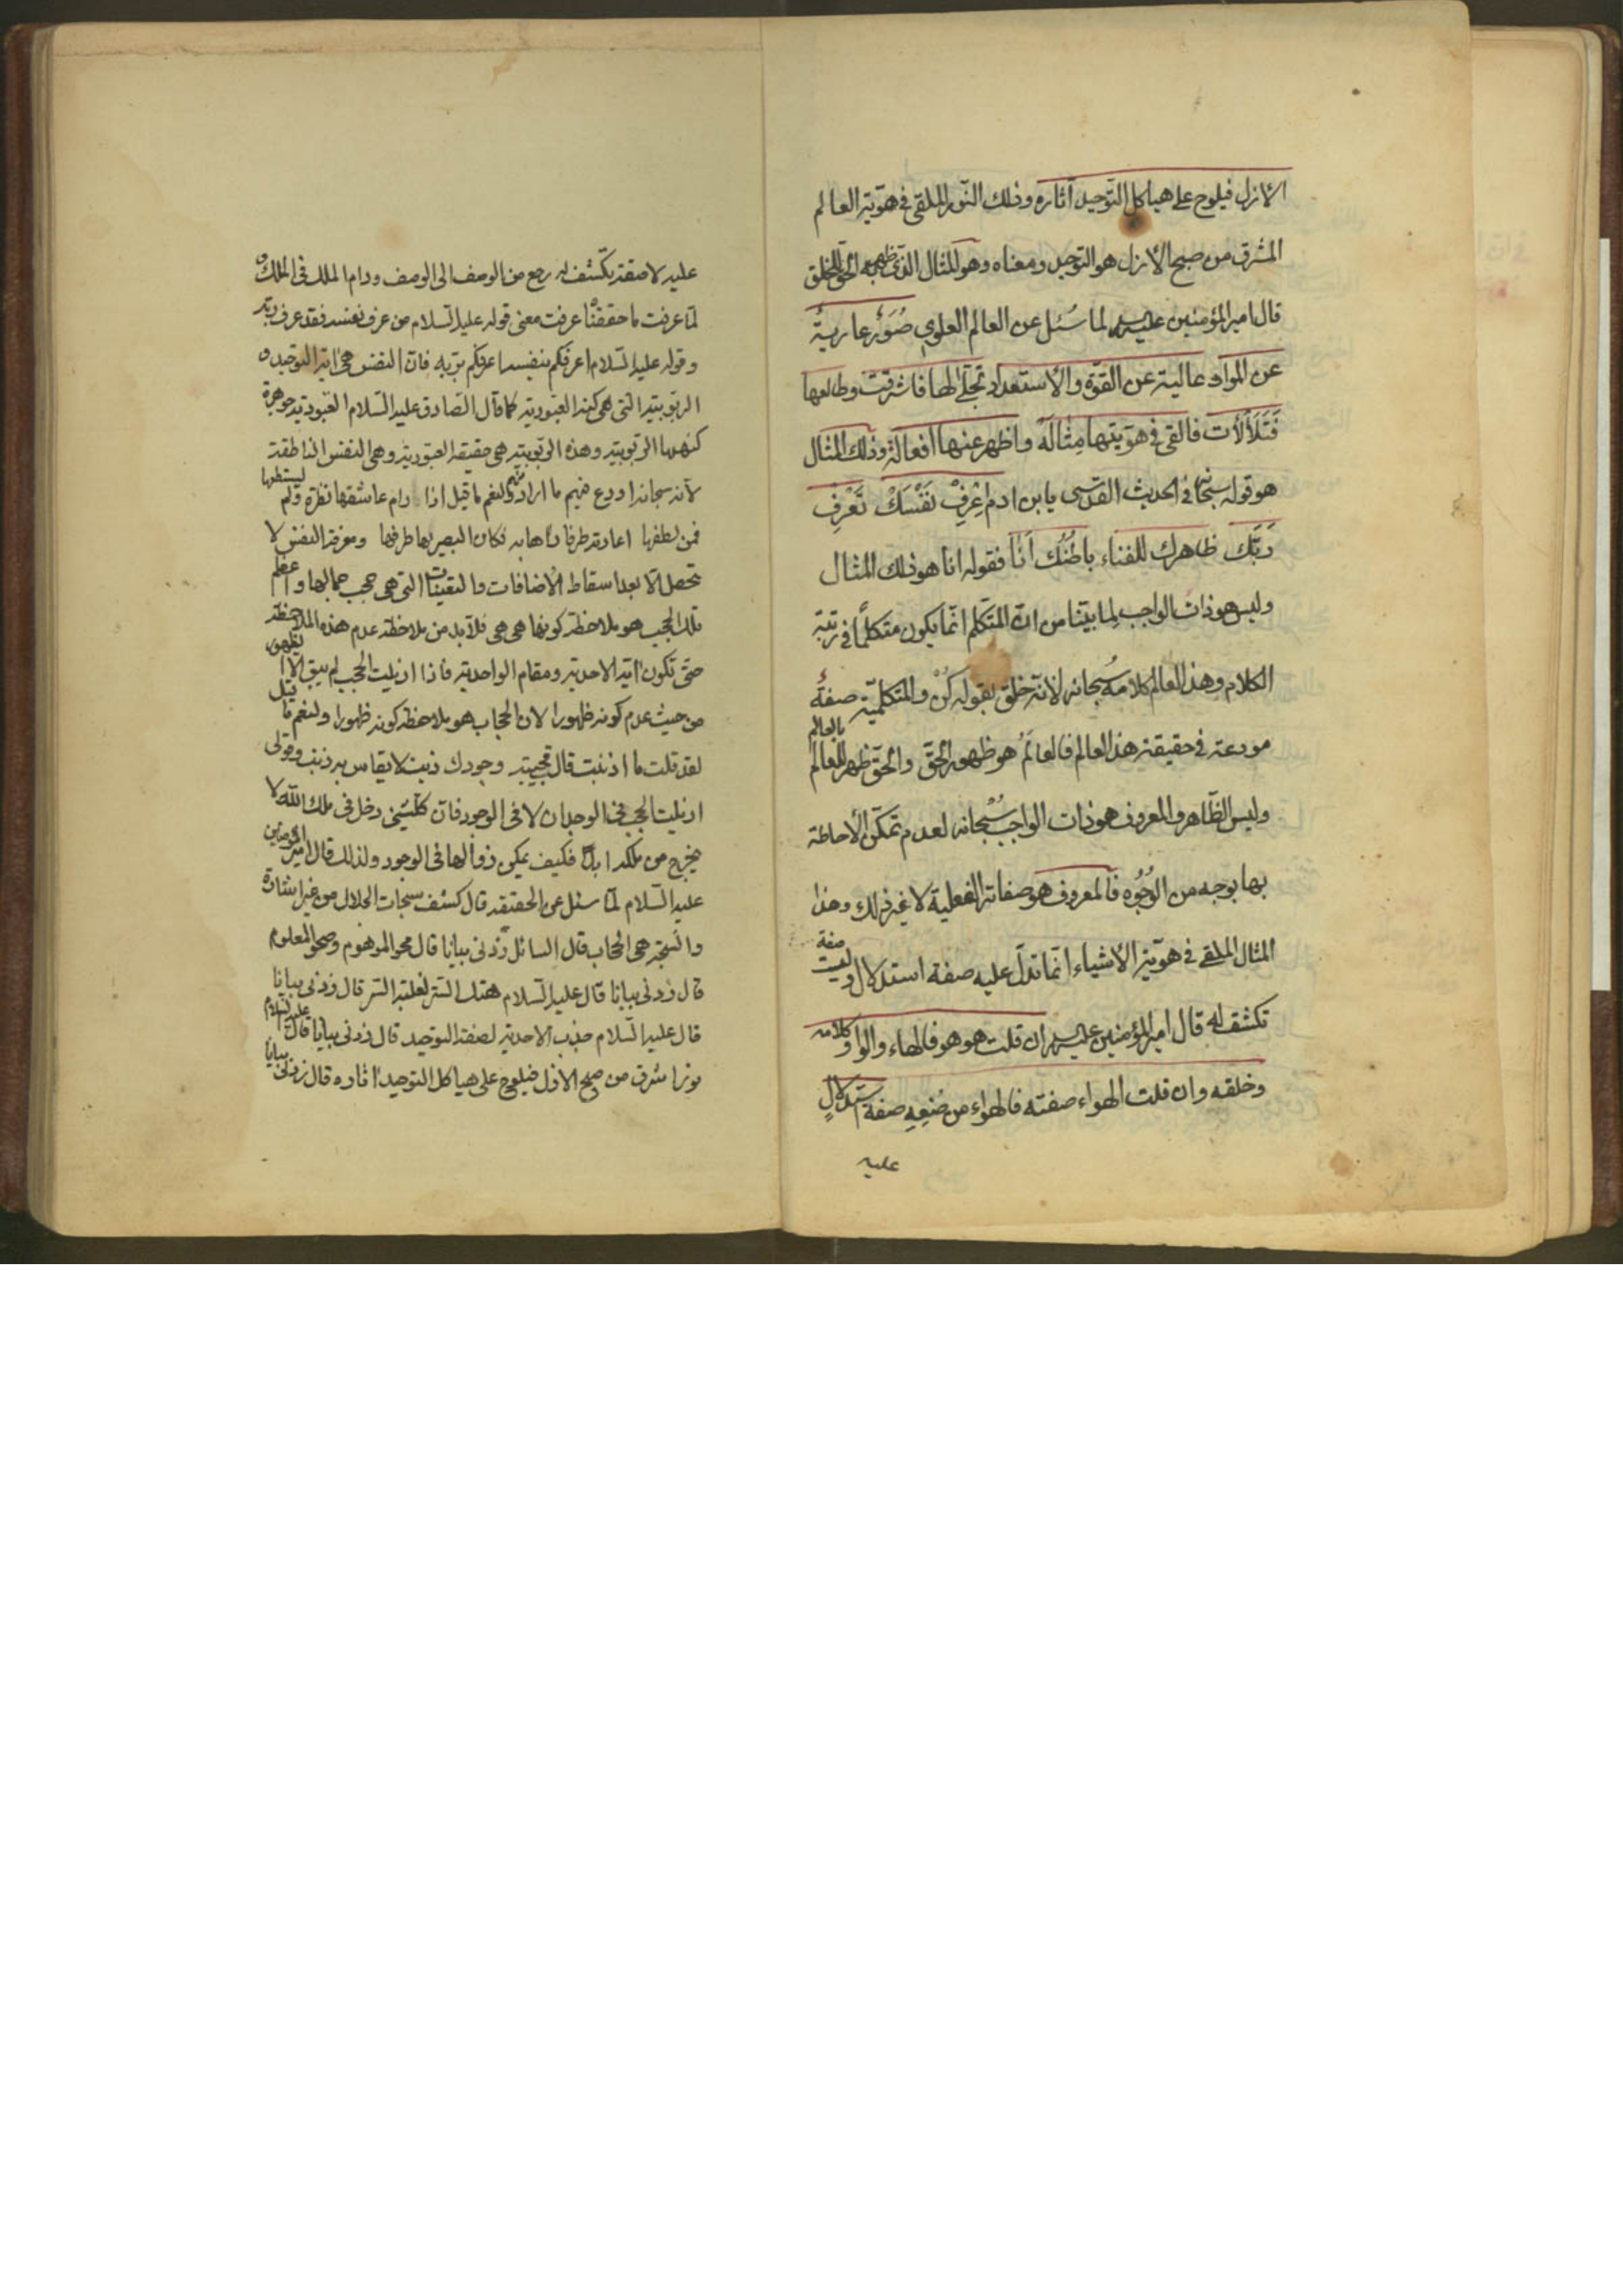 الأزل فيلوح على هياكل التّوحيد آثاره وذلك النّور الملقى فى هوّية العالم
المشرق من صبح الأزل هو التوحيد ومعناه وهو المثال الذى ظهر به الحق للخلق
قال امير المؤمنين عليه لما سُئل عن العالم العلوي صُوَرٌ عاريةٌ
عن الموادّ عالية عن القوّة والأستعداد تجلّى لها فاشرقت وطالعها
فَتَلَأْلَأَت فالقى فى هوّيتها مِثالَهُ واظهر عنها افعاله وذلك المثال
هو قوله سبحانه فى الحديث القدسى يا بن ادم اِعْرِفْ نَفْسَكْ تَعْرِفْ
رَبَّكَ ظاهرك للفناء باطُنك اَنَا فقوله انا هو ذلك المثال
وليس هو ذات الواجب لِما بيّنا من انّ المتكلّم انّما يكون متكلّمًا فى رتبة
الكلام وهذا العالم كلامه سُبحانه لانّه خلق بقوله كُنْ والمتكلّمية صفةٌ
مودعة فى حقيقة هذا العالم فالعالَمُ هو ظهور الحقّ والحقّ ظهر للعالم بالعالم
وليس الظّاهر والمعروف هو ذات الواجب سُبْحانه لعدم تمكّن الأحاطة
بها بوجه من الوُجُوه فالمعروف هو صفاته الفعلية لا غير ذلك وهذا
المثال الملقى فى هوّية الأشياء انّما تدلّ عليه صفة استدلال وليست صفة
تكشف له قال امير المؤمنين عليه ان قلت هو هو فالهاء والواو كلامه
وخلقه وان قلت الهواء صفته فالهواء من صُنعِهِ صفة استدلالٍ
عليه
عليه لا صفة تكشف له رجع من الوصف الى الوصف ودام الملك فى الملك
لمّا عرفت ما حققناه عرفت معنى قوله عليه السّلام من عرف نفسه فقد عرف ربّه
وقوله عليه السّلام اعرفكم بنفسه اعرفكم بربّه فانّ النفس هى اية التوحيد
الربوبية التى هى كنه العبودية كما قال الصّادق عليه السّلام العبودية جوهرة
كنهها الربوبية وهذه الربوبية هى حقيقة العبودية وهى النفس الناطقة
لأنه سبحانه اودع فيهم ما اراد منهم ولنعم ما قيل اذا رام عاشقها نظرة ولم يستطعها
فمن لطفها اعارته طرفا رأها به فكان البصير بها طرفها ومعرفة النفس لا
تحصل الّا بعد اسقاط الأضافات والتعينات التى هى حجب جمالها واعظم
تلك الحجب هو ملاحظة كونها هى هى فلا بد من ملاحظة عدم هذه الملاحظة
حتّى تكون اية الاحدية ومقام الواحدية فاذا ازيلت الحجب لم يبق الّا الظهور
من حيث عدم كونه ظهورا لان الحجاب هو ملاحظة كونه ظهورا ولنعم ما قيل
لقد قلت ما اذنبت قال مجيبة وجودك ذنب لا يقاس به ذنب وقولى
ازيلت الحجب فى الوجدان لا فى الوجود فانّ كلّ شىء دخل فى ملك اللّه لا
يخرج من ملكه ابدا فكيف يمكن زوالها فى الوجود ولذلك قال امير المؤمنين
عليه السّلام لمّا سئل عن الحقيقة قال كشف سبحات الجلال من غير اشارة
والسبحة هى الحجاب قال السائل زدنى بيانا قال محو الموهوم وصحو المعلوم
قال زدنى بيانا قال عليه السّلام هتك الستر لغلبة السّر قال زدنى بيانا
قال عليه السّلام جذب الاحدية لصفة التوحيد قال زدنى بيانا قال عليه السلام
نور اشرق من صبح الازل فيلوح على هياكل التوحيد اثاره قال زدنى بيانا